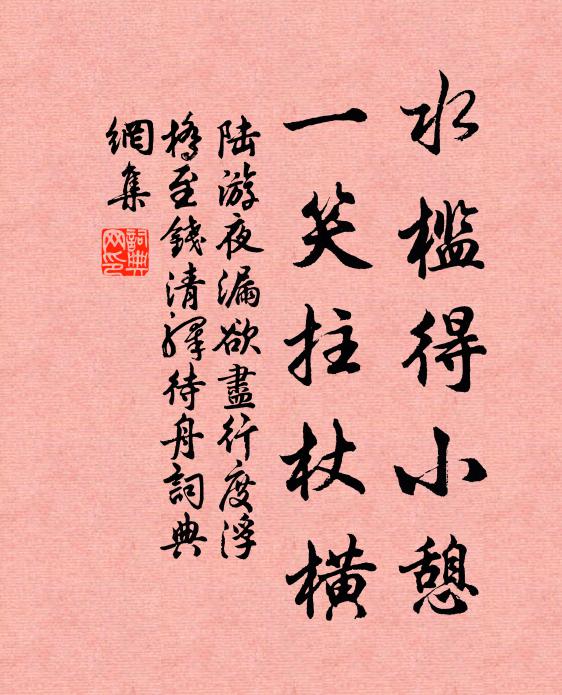 水檻得小憩
一笑拄杖橫
陆游夜漏欲盡行度浮
橋至錢清驛待舟詞典
網集
詞典
网印